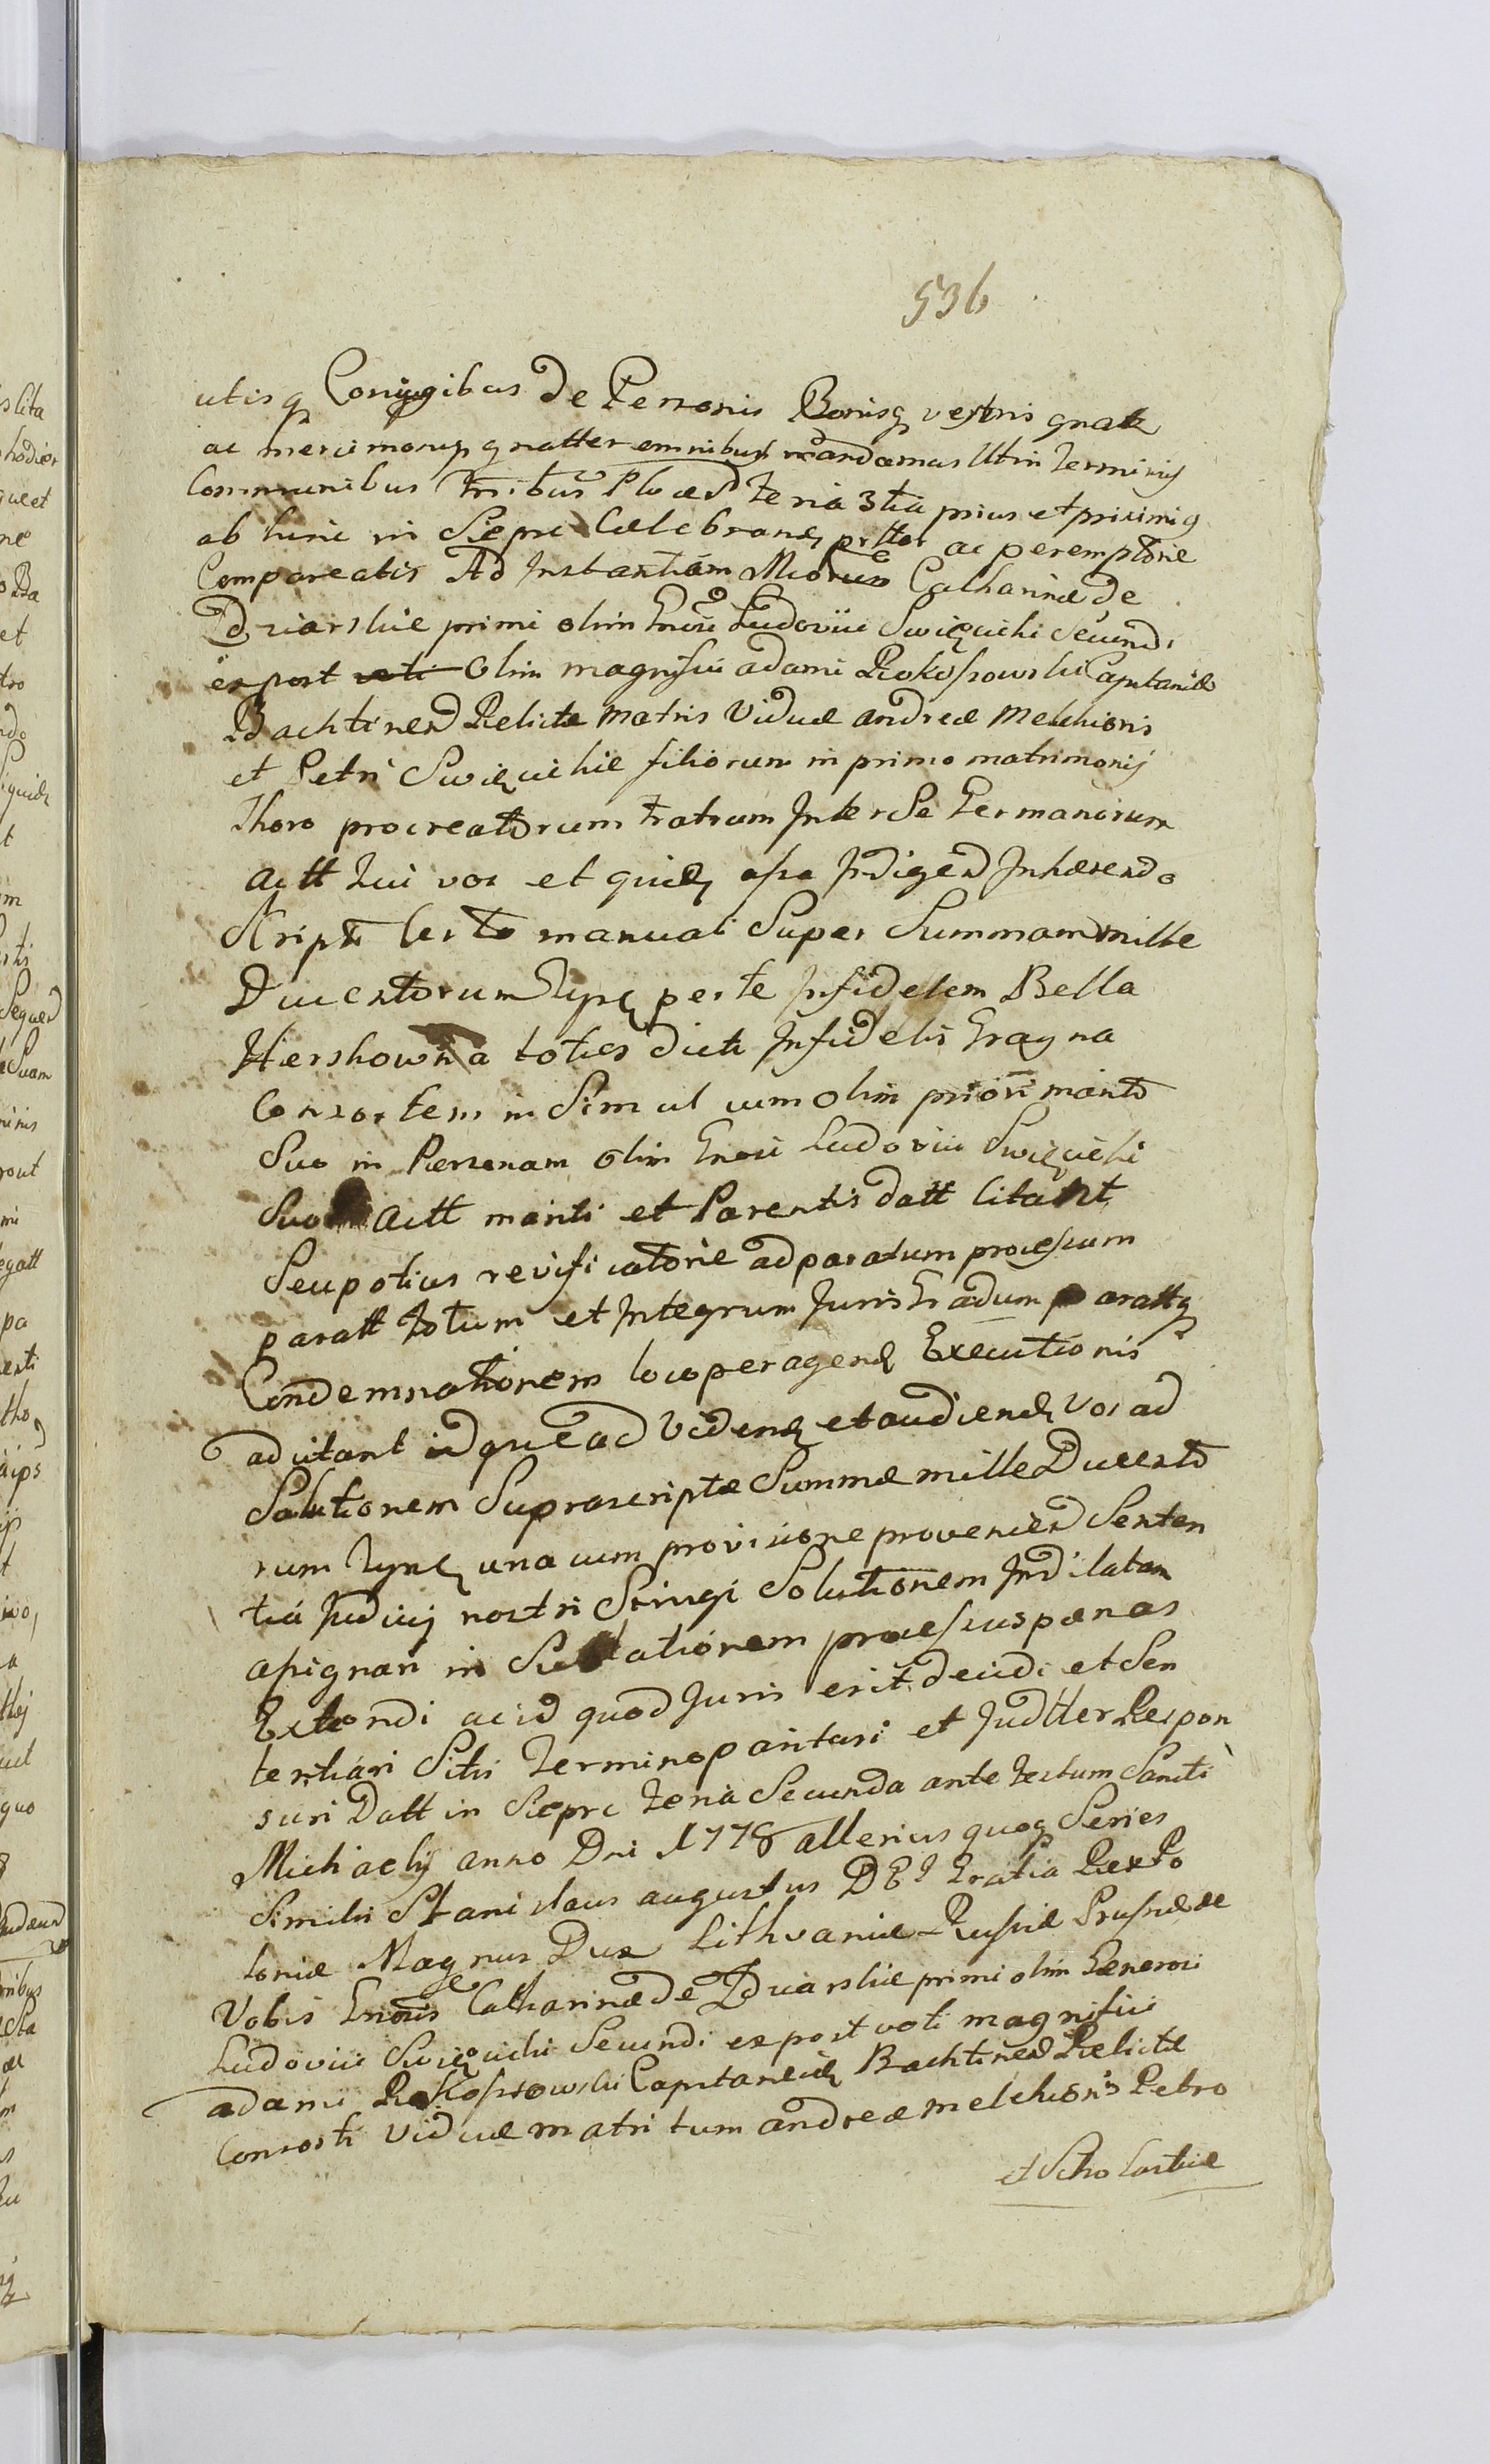 536
utisq Coniugibus de Personis Bonisq vestris gnatt
ac mercimonys gnatter omnibus mandamus Utin Terminis
Communibus Trribus Plocen feria 3tia prius et proximiq
ab hinc in Sieprc Celebrand prtter ac peremptorie
Compareatis Ad Instantiam Mcorum Catharinæ de
Zdziarskie primi olim Gnosi Ludovici Swięcicki Secundi
expost voti Olim magnifici adami Rokossowski Capitanidæ
Bachtinen Relictæ Matris Viduæ andreæ Melchioris
et Petri Swięcickie filiorum in primo matrimonij
Thoro procreatorum fratrum Inter Se Germanorum
Actt Qui vos et quid ipsa Indigen Inhærendo
Scripto Certo manuali Super Summam mille
Ducentorum Tynf per te Infidelem Bella
Herskowna toties dicti Infidelis Gragna
Consortem in Simul cum olim priori marito
Suo in Personam olim Gnosi Ludovici Swięcicki
Suo Actt mariti et Parentis datt Citant
Seu potius revificatorie ad paratum processum
paratt Totum et Integrum Juris Gradum parattq
Condemnationem loco peragend Executionis
adcitant idque ad Videnđ et audiend vos ad
Solutionem Suprascriptæ Summæ mille Ducento
rum Tynf una cum provisione provenien Senten
tiá Judicij nostri Stringi Solutionem Indilatam
assignari in Sublationem processus pœnas
Extendi ac id quod Juris erit decidi et Sen
tentiári Sitis Termino paritari et Judtter Respon
suri Datt in Sieprc feria Secunda ante festum Sancti
Michaelis anno Dni 1778 alterius quoq Series
Similis Stanislaus augustus DEI Gratia Rex Po
loniæ Magnus Dux Lithvaniæ Russiæ Prussiæ &
Vobis Gnosis Catharinæ de Zdziarskie primi olim Generosi
Ludovici Swięcicki Secundi expost voti magnifici
adami Rokossowski Capitaneid Bachtinen Relictæ
Consorti Viduæ matri tum andreæ Melchioris Petro
et Scholasticæ